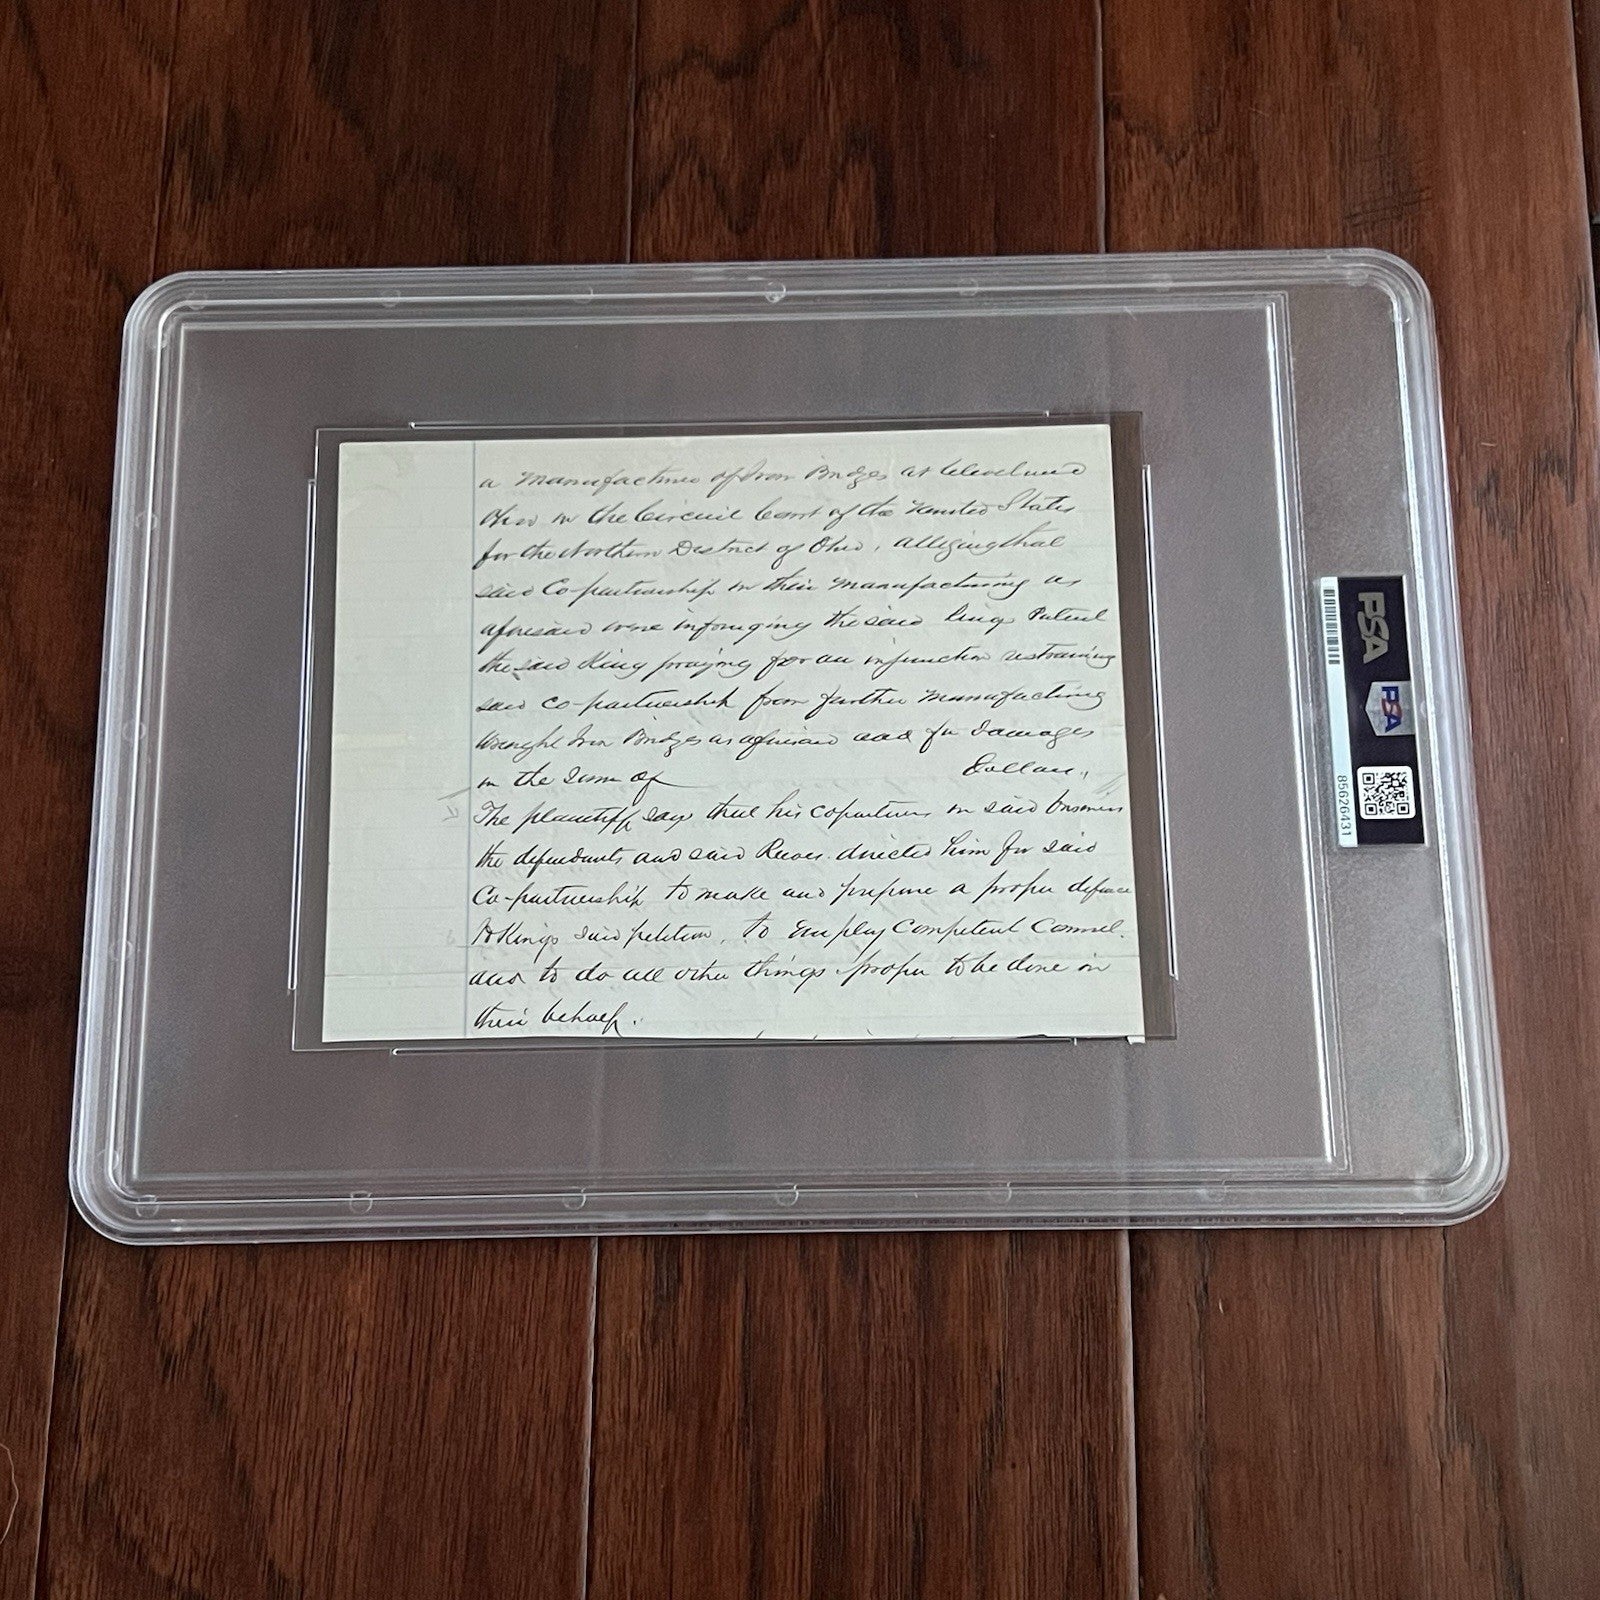 a manufacturer of Iron Bridges at Cleveland
Ohio in the Circuit Court of the United States
for the Northern District of Ohio, alleging that
said Co-partnership in their manufacturing as
aforesaid were infringing the said King Patent
the said King praying for an injunction restraining
said Co-partnership from further manufacturing
Wrought Iron Bridges as aforesaid and for damages
in the sum of Dollars,
The plaintiff says that his copartners in said business
the defendants and said Reeves directed him for said
Co-partnership to make and prepare a proper defence
to Kings said petition, to employ Competent Counsel.
and to do all other things proper to be done in
their behalf.
PSA
PSA
85626431